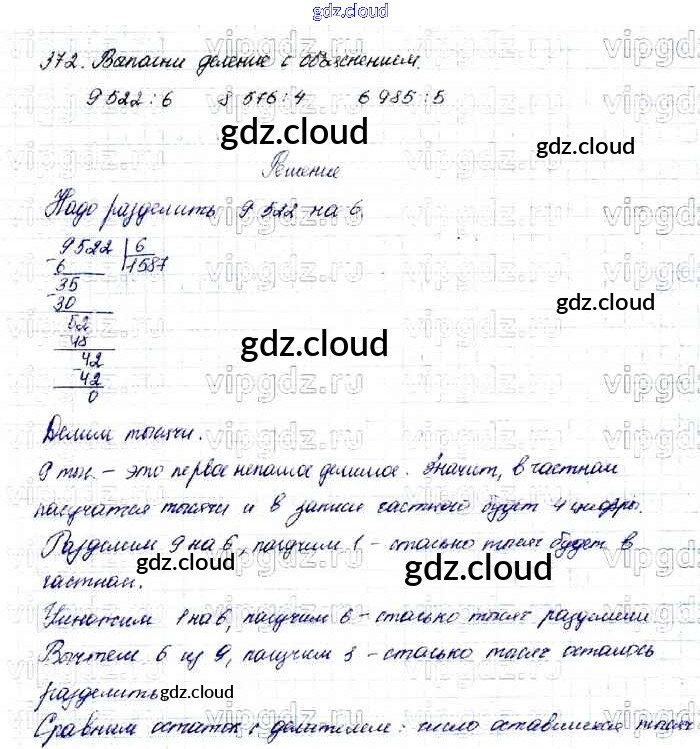 gdz.cloud
372. Выполни деление с объяснением.
9 522 : 6 8 576 : 4 6 985 : 5
gdz.cloud
gdz.cloud
Решение
Надо разделить 9 522 на 6.
9522 | 6
- 6 1587
35
- 30
gdz.cloud
52
48
gdz.cloud
42
- 42
0
Делим тысячи.
9 тыс. – это первое неполное делимое. Значит, в частном
получатся тысячи и в записи частного будет 4 цифры.
gdz.cloud
Разделим 9 на 6, получим 1 – столько тысяч будет в
частном.
gdz.cloud
Умножим 1 на 6, получим 6 – столько тысяч разделили
Вычтем 6 из 9, получим 3 – столько тысяч осталось
разделить
gdz.cloud
Сравним остаток с делителем: число оставшихся тысяч